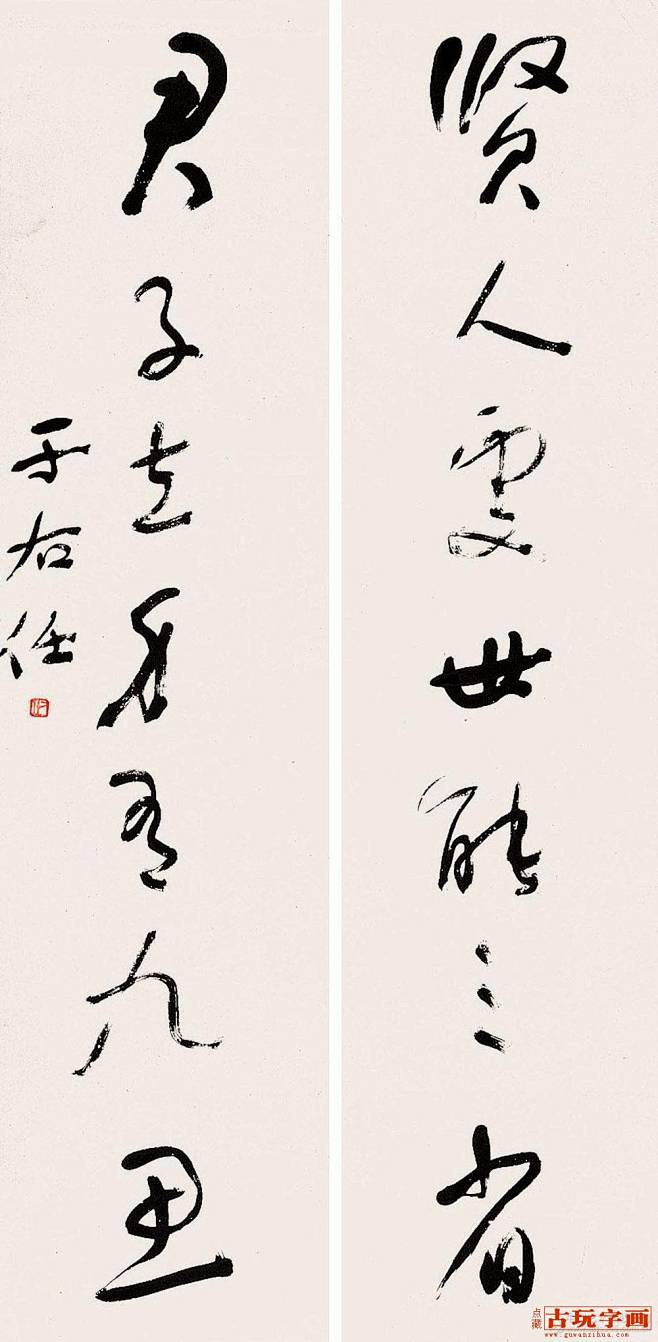 賢人處世能三省
君子立身有九思
于右任
点藏
古玩字画
www.guwanzihua.com